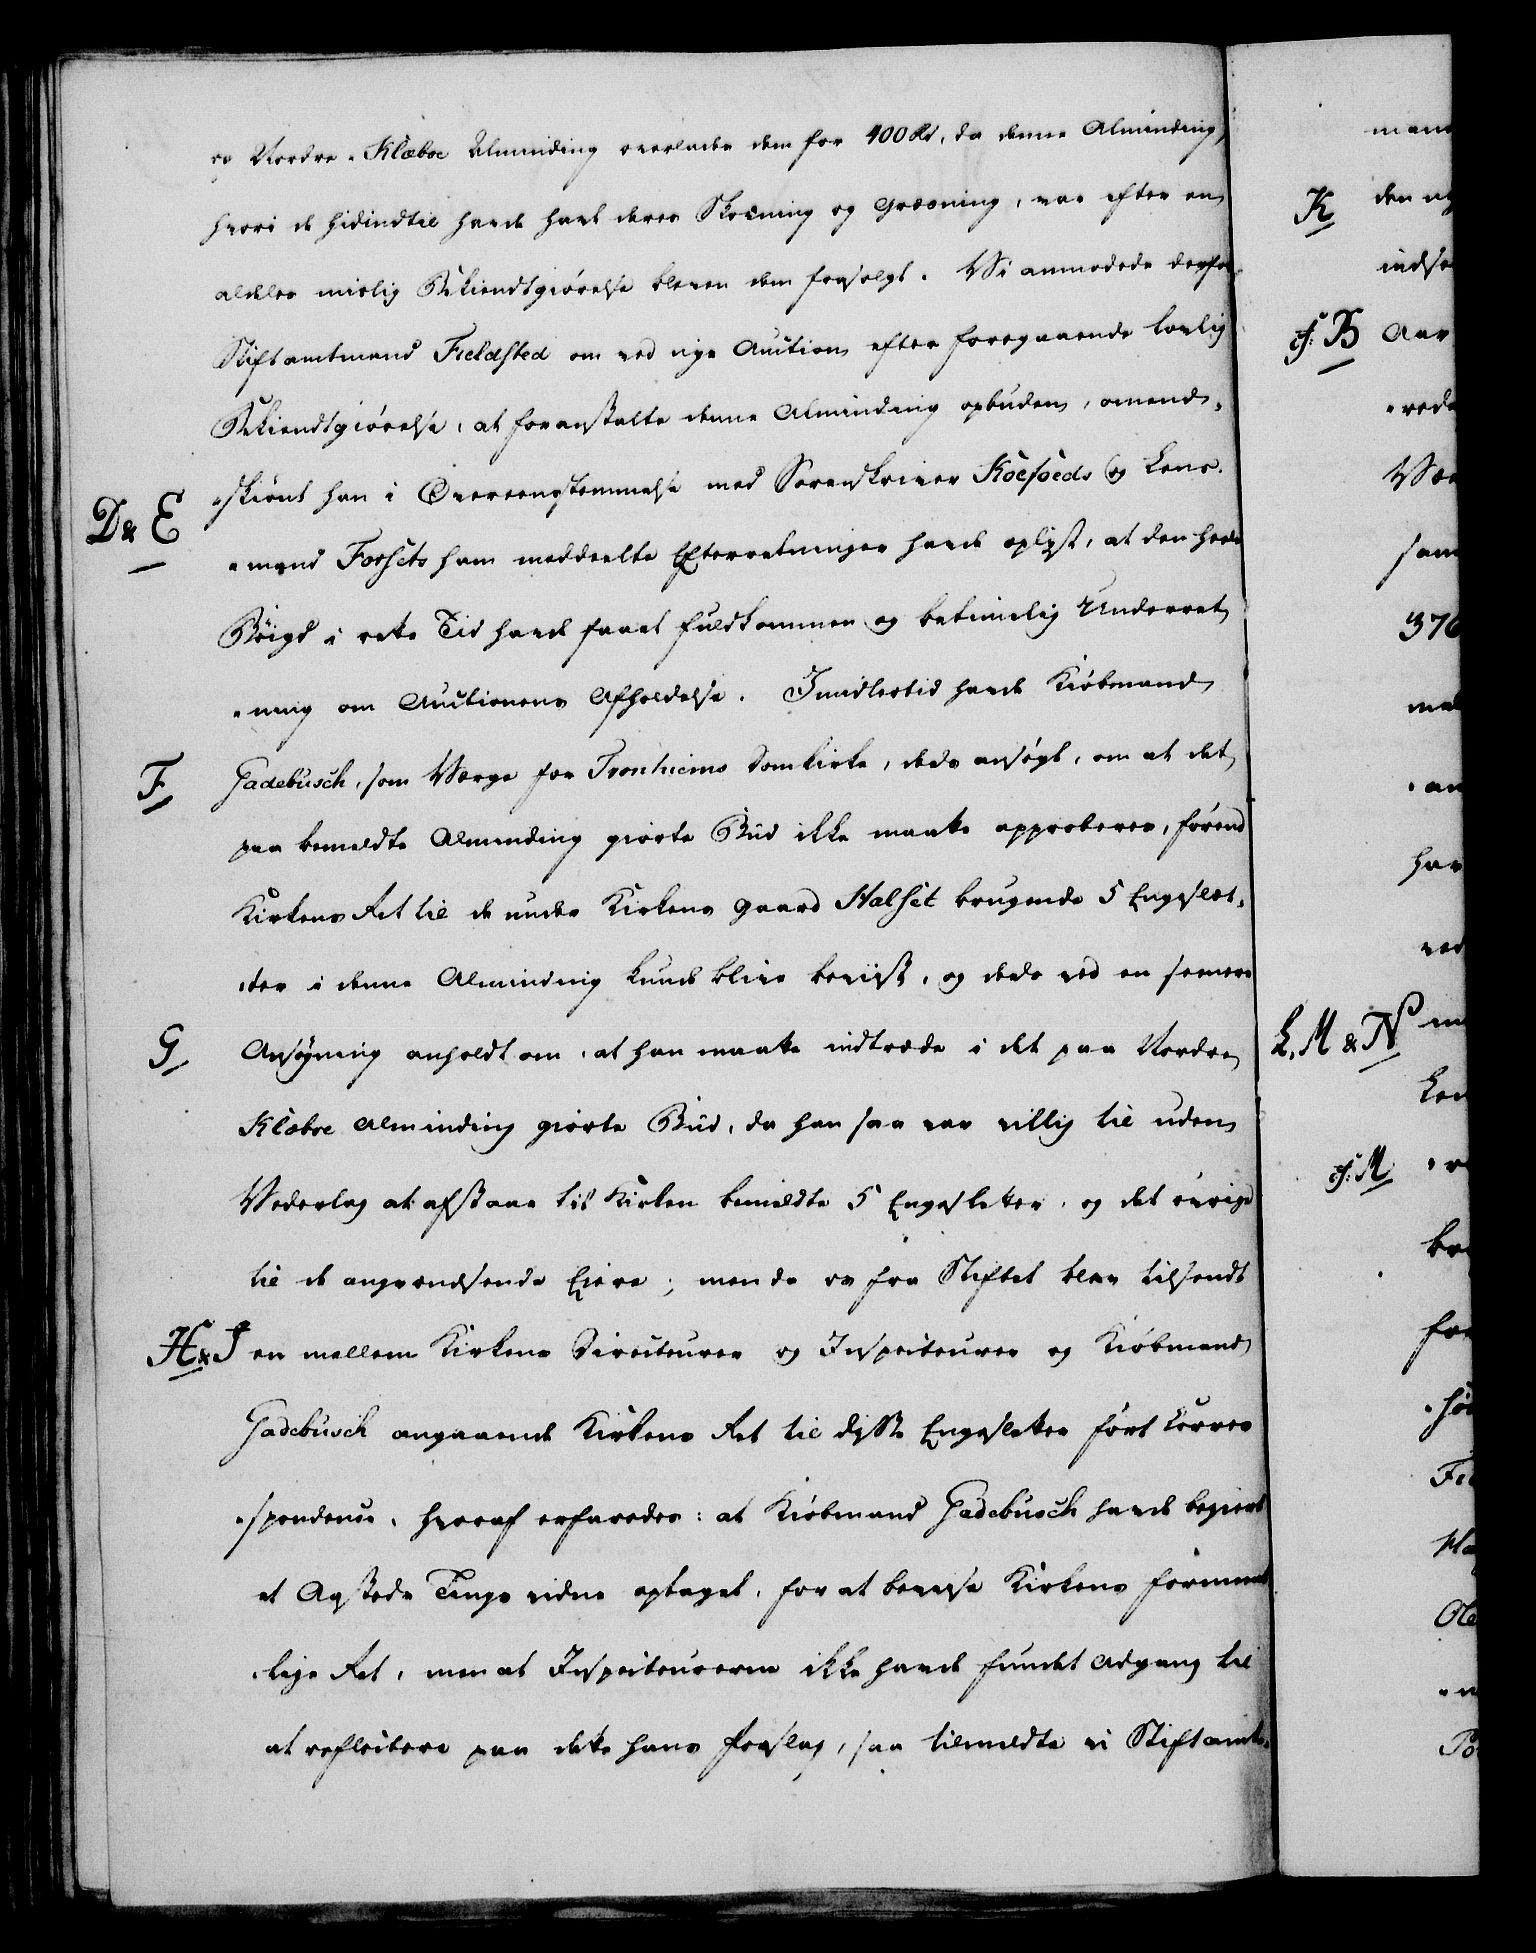 og Nordre-Klæboe Alminding overlades dem for 400 Rd, da denne Alminding,
hvori de hidindtil havde havt deres Skovning og Græsning, var efter en
aldeles mislig Bekiendtgiørelse bleven dem frasolgt. Vi anmodede derfor
Stiftamtmand Fieldsted om ved nye Auction efter foregaaende lovlig
Bekiendtgiørelse, at foranstalte denne Alminding opbuden, omend-
D & E
-skiønt han i Overeensstemmelse med Sorenskriver Koefoeds og Lens-
-mand Forsets ham meddeelte Efterretninger havde oplyst, at den hele
Bøigd i rette Tid havde faaet fuldkommen og betimelig Underret
-ning om Auctionens Afholdelse. Imidlertid havde Kiøbmand
F
Gadebusch, som Værge for Tronhiems Domkirke, deels ansøgt, om at det
paa bemeldte Alminding giorte Bud ikke maatte approberes, førend
Kirkens Ret til de under Kirkens Gaard Halset brugende 5 Engeslet-
-ter i denne Alminding kunde blive beviist, og deels ved en senere
G
Ansøgning anholdt om, at han maatte indtræde i det paa Nordre
Klæboe Alminding giorte Bud, da han saa var villig til uden
Vederlag at afstaae til Kirken bemeldte 5 Engesletter, og det øvrige
til de angrændsende Eiere; men da os fra Stiftet blev tilsendt
H & J
en mellem Kirkens Directeurer og Inspecteurer og Kiøbmand
Gadebusch angaaende Kirkens Ret til disse Engesletter ført Corres
-spondence, hvoraf erfaredes: at Kiøbmand Gadebusch havde begiert
et Aasteds Tings vidne optaget, for at bevise Kirkens formeent
-lige Ret, men at Inspecteurerne ikke havde fundet Adgang til
at reflectere paa dette hans Forslag, saa tilmeldte vi Stiftamt-
K
cf. B
L, M & N
cf. M
den
Aar
376